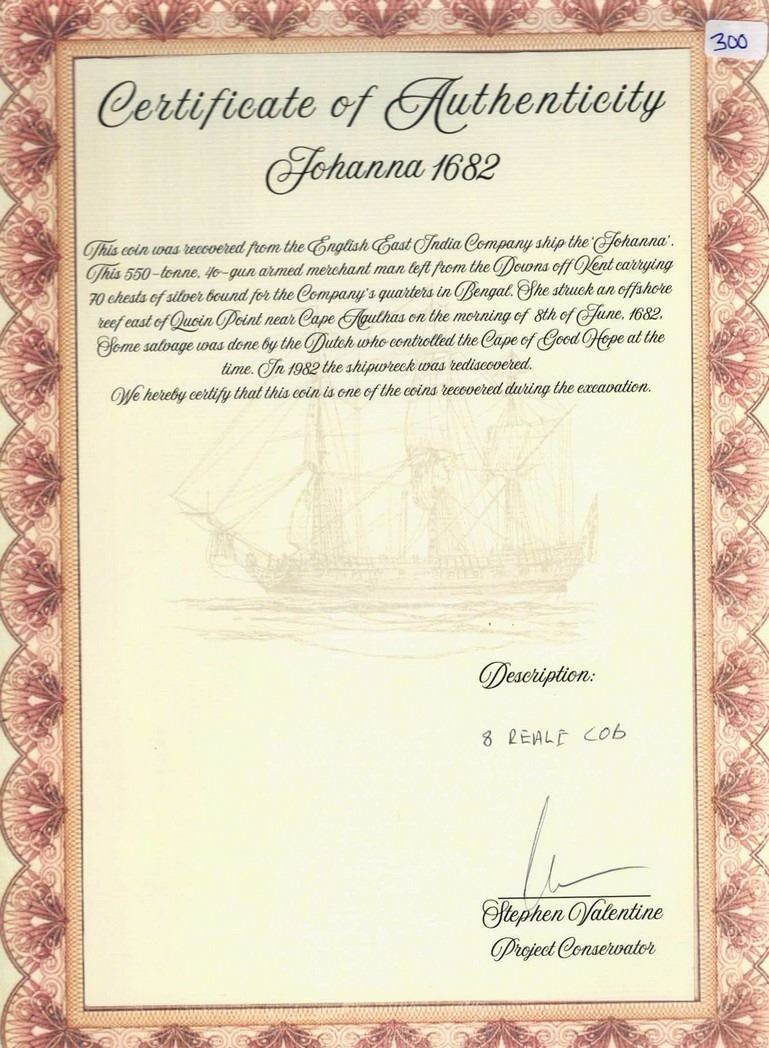 300
Certificate of Authenticity
Johanna 1682
This coin was recovered from the English East India Company ship the 'Johanna'.
This 550-tonne, 40-gun armed merchant man left from the Downs off Kent carrying
70 chests of silver bound for the Company's quarters in Bengal. She struck an offshore
reef east of Quoin Point near Cape Agulhas on the morning of 8th of June, 1682.
Some salvage was done by the Dutch who controlled the Cape of Good Hope at the
time. In 1982 the shipwreck was rediscovered.
We hereby certify that this coin is one of the coins recovered during the excavation.
Description:
8 REALE COB
Stephen Valentine
Project Conservator